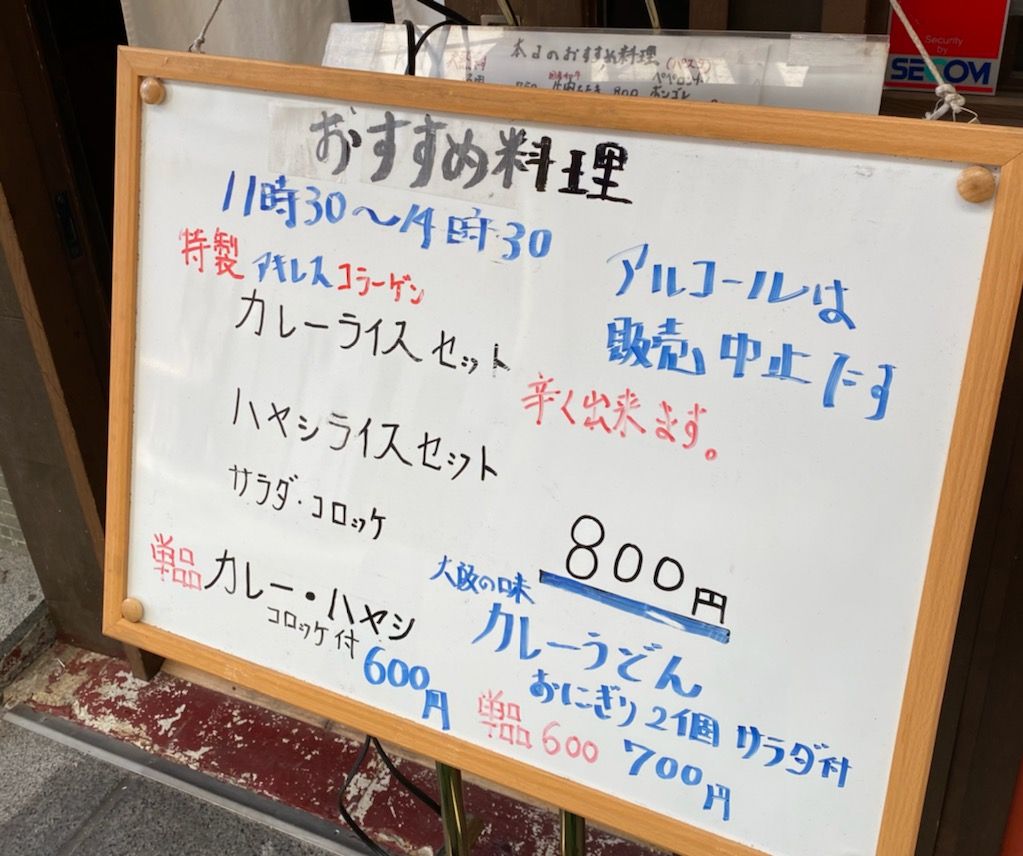 Security
by
SECOM
本日のおすすめ料理
800 ボンゴレ
おすすめ料理
11時30〜14時30
アルコールは
販売中止です
特製 アキレスコラーゲン
カレーライスセット
辛く出来ます。
ハヤシライスセット
サラダ・コロッケ
800円
単品 カレー・ハヤシ
コロッケ付
600円
大阪の味
カレーうどん
おにぎり2個 サラダ付
単品 600 700円